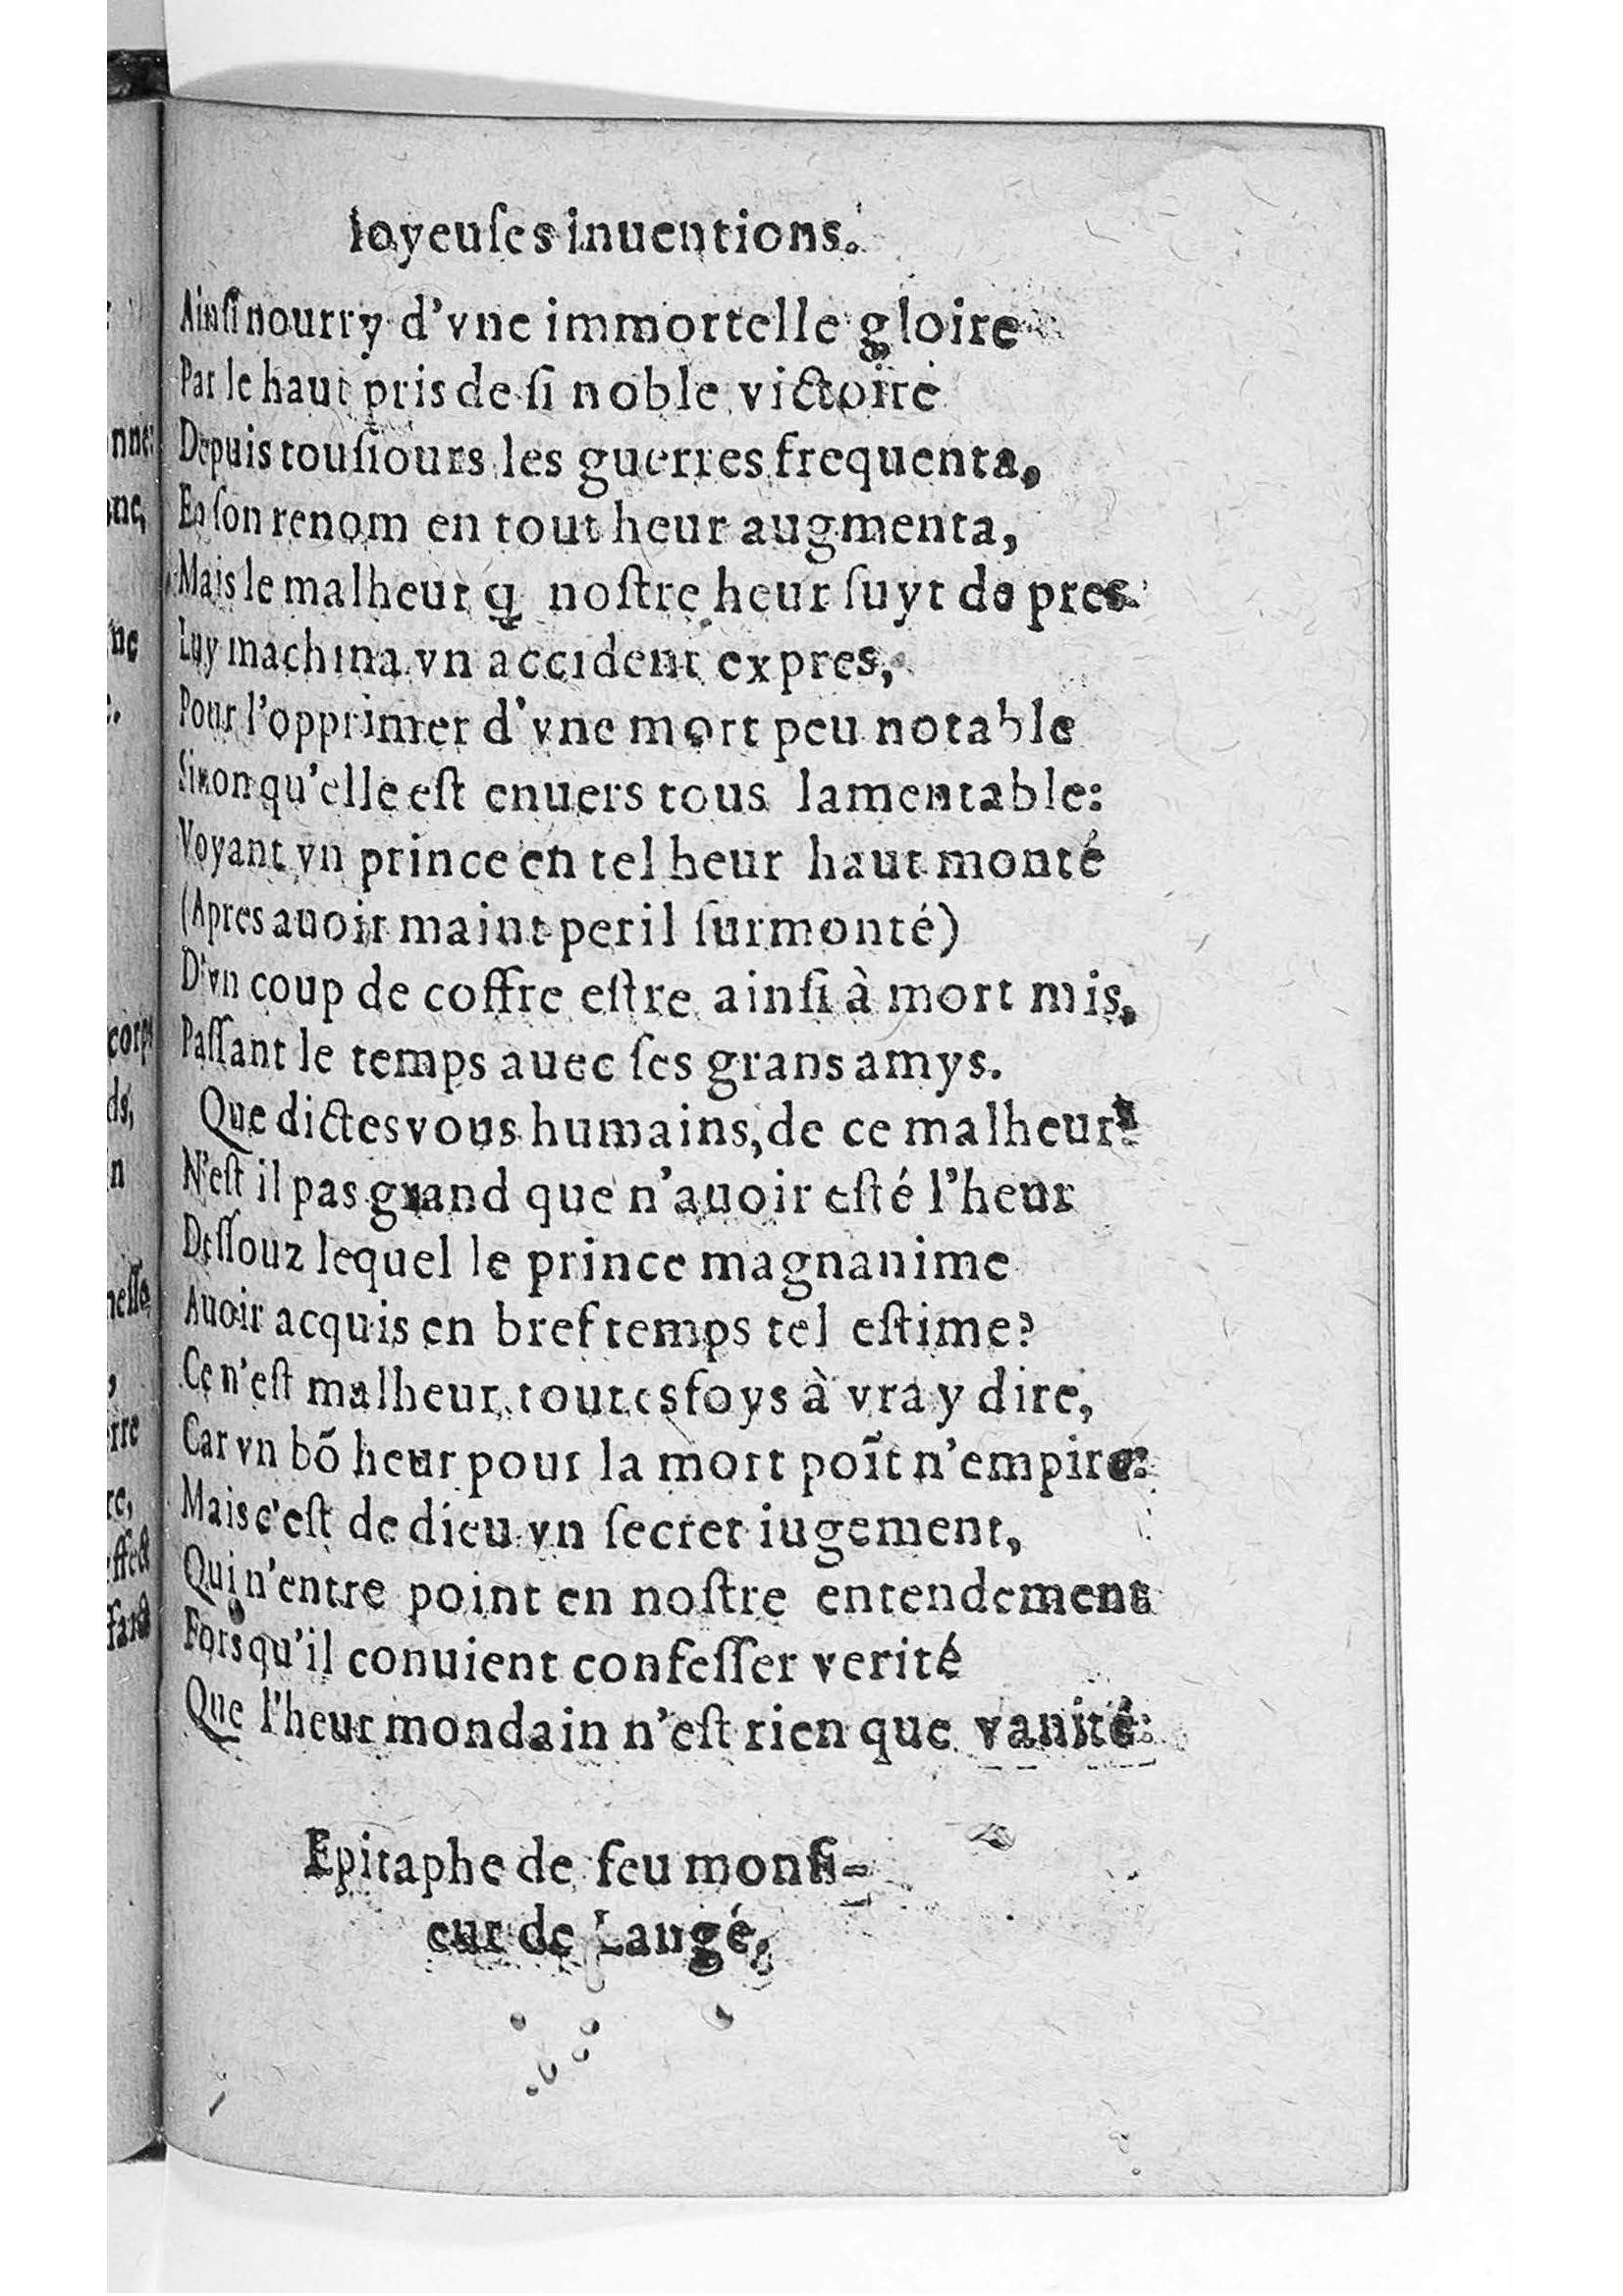 Ioyeuſes inuentions.
Ainſi nourry d'vne immortelle gloire
Par le haut pris de ſi noble victoire
Depuis touſiours les guerres frequenta,
En ſon renom en tout heur augmenta,
Mais le malheur q̃ noſtre heur ſuyt de pres
Luy machina vn accident expres,
Pour l'opprimer d'vne mort peu notable
Sinon qu'elle eſt enuers tous lamentable:
Voyant vn prince en tel heur haut monté
(Apres auoir maint peril ſurmonté)
D'vn coup de coffre eſtre ainſi à mort mis,
Paſſant le temps auec ſes grans amys.
Que dictes vous humains, de ce malheur?
N'eſt il pas grand que n'auoir eſté l'heur
Deſſouz lequel le prince magnanime
Auoir acquis en bref temps tel eſtime?
Ce n'eſt malheur toutesfoys à vray dire,
Car vn bõ heur pour la mort poĩt n'empire:
Mais c'eſt de dieu vn ſecret iugement,
Qui n'entre point en noſtre entendement
Fors qu'il conuient confeſſer verité
Que l'heur mondain n'eſt rien que vanité:
Epitaphe de feu monſi-
eur de Langé.
nne
corps
ds,
n
neſſe,
rre
re,
effect
faict